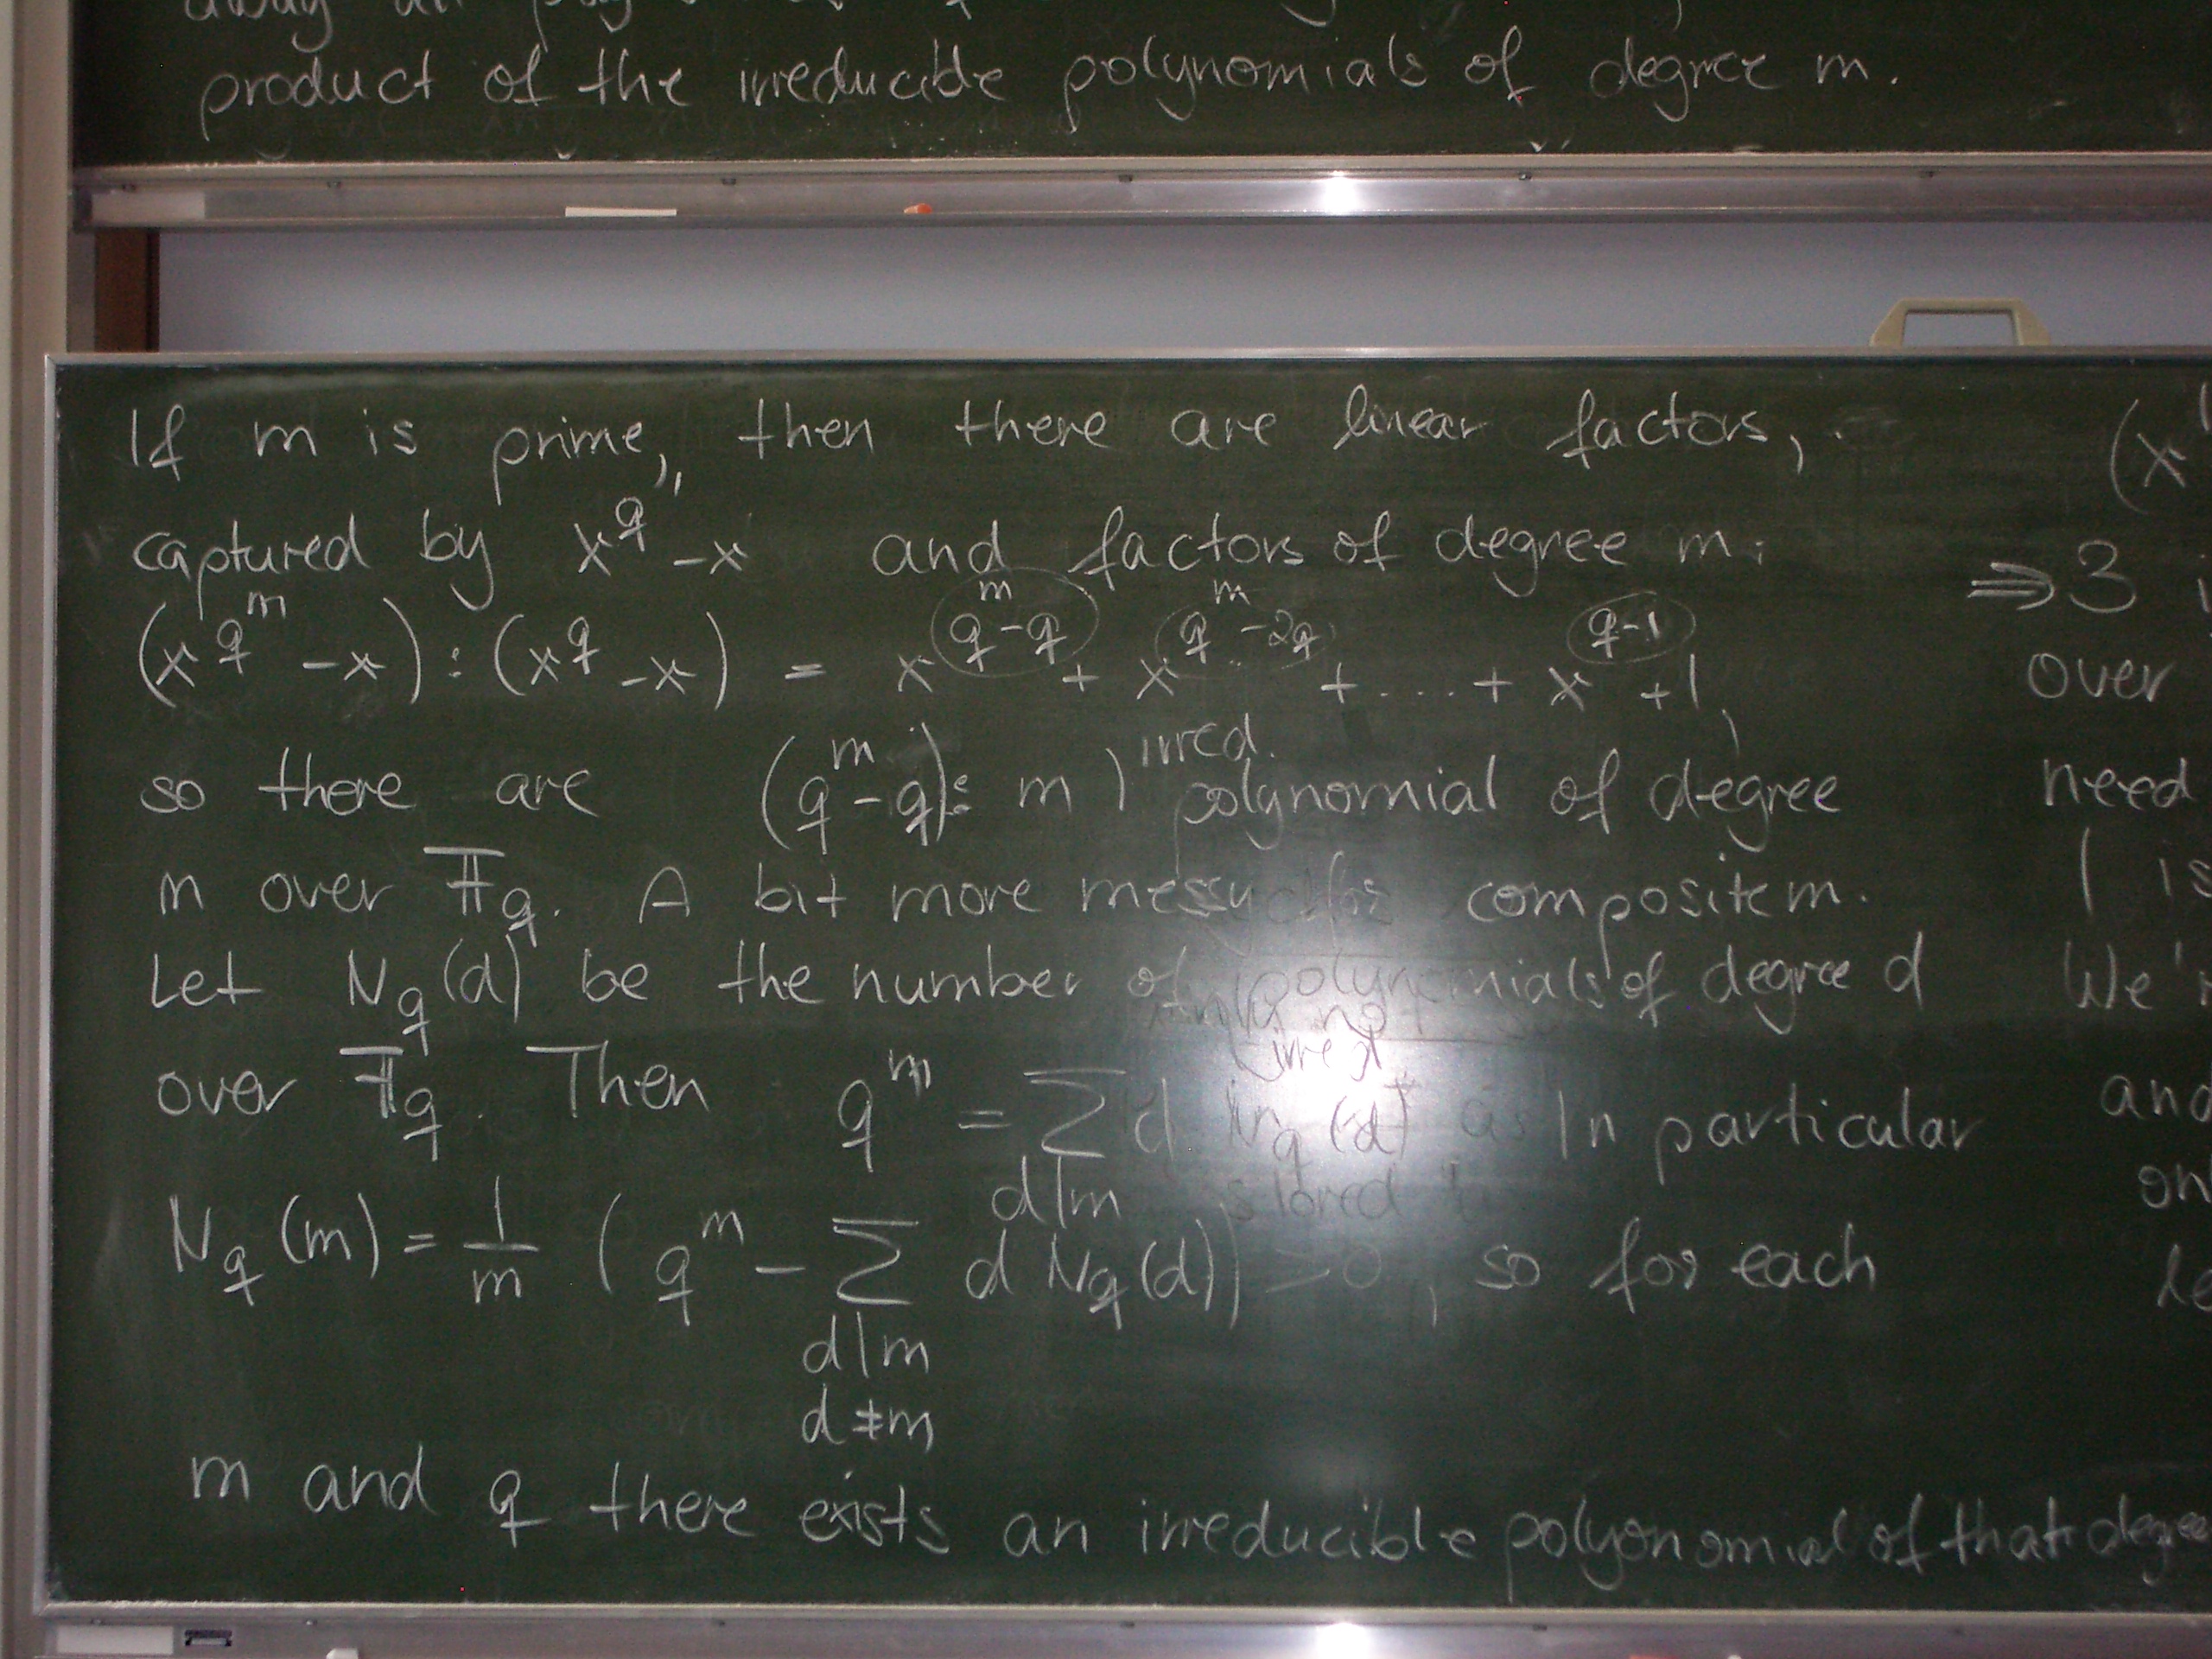 product of the irreducible polynomials of degree m.
If m is prime, then there are linear factors,
captured by x^q - x and factors of degree m:
(x^{q^m} - x) : (x^q - x) = x^{q^m - q} + x^{q^m - 2q} + .... + x^{q-1} + 1,
so there are (q^m - q) : m irred. polynomial of degree
m over F_q. A bit more messy for composite m.
Let N_q(d) be the number of irred polynomials of degree d
over F_q. Then q^m = Σ_{d|m} d N_q(d) In particular
N_q(m) = 1/m (q^m - Σ_{d|m, d≠m} d N_q(d)) > 0, so for each
m and q there exists an irreducible polyonomial of that degree
(x
⇒ 3
over
need
1 is
We'
and